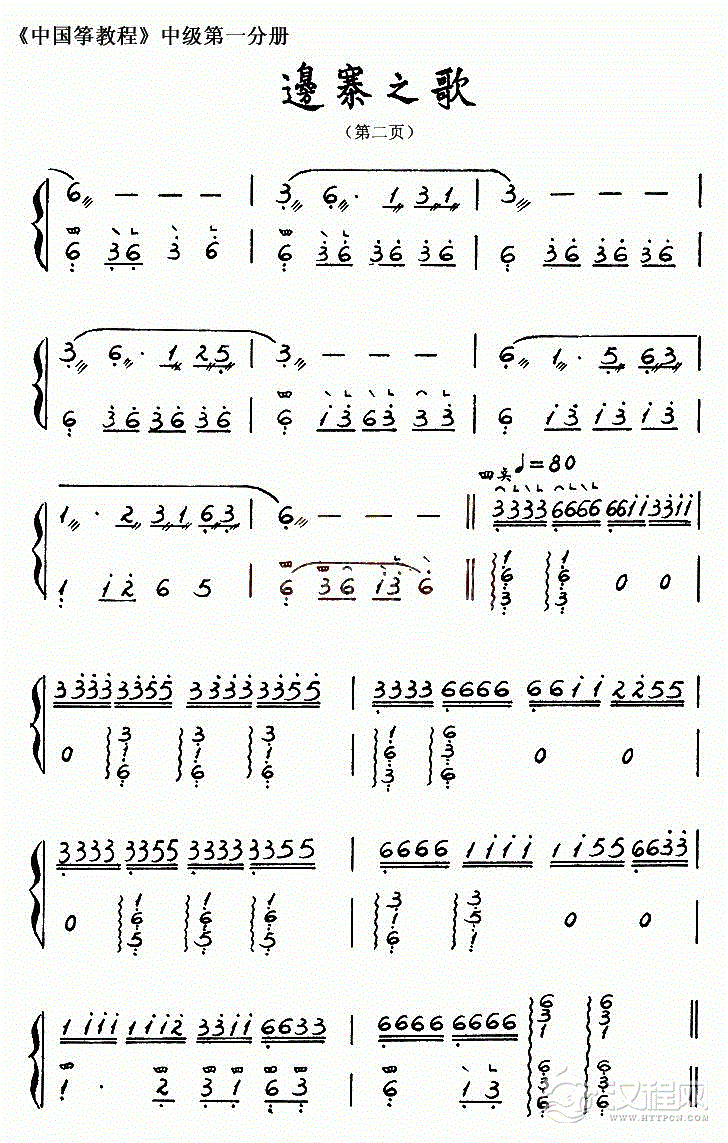 《中国筝教程》中级第一分册
邊寨之歌
（第二页）
6 — — — | 3 6· 1 3 1 | 3 — — — |
6 3 6 3 6 | 6 3 6 3 6 3 6 | 6 3 6 3 6 3 6 |
3 6· 1 2 5 | 3 — — — | 6 1· 5 6 3 |
6 3 6 3 6 3 6 | 6 1 3 6 3 3 3 | 6 1 3 1 3 1 3 |
四关 ♩=80
1· 2 3 1 6 3 | 6 — — — ‖ 3333 6666 6611 3311 |
1 1 2 6 5 | 6 3 6 1 3 6 ‖ 1 6 3 1 6 3 0 0 |
3333 3355 3333 3355 | 3333 6666 6611 2255 |
0 3 1 6 3 1 6 3 1 6 | 1 6 3 6 3 6 0 0 |
3333 3355 3333 3355 | 6666 1111 1155 6633 |
0 1 6 5 1 6 5 1 6 5 | 3 1 6 3 5 1 0 0 |
1111 1112 3311 6633 | 6666 6666 6 3 1 6 3 1 ‖
1· 2 3 1 6 3 | 6 1 3 6 3 6 3 ‖